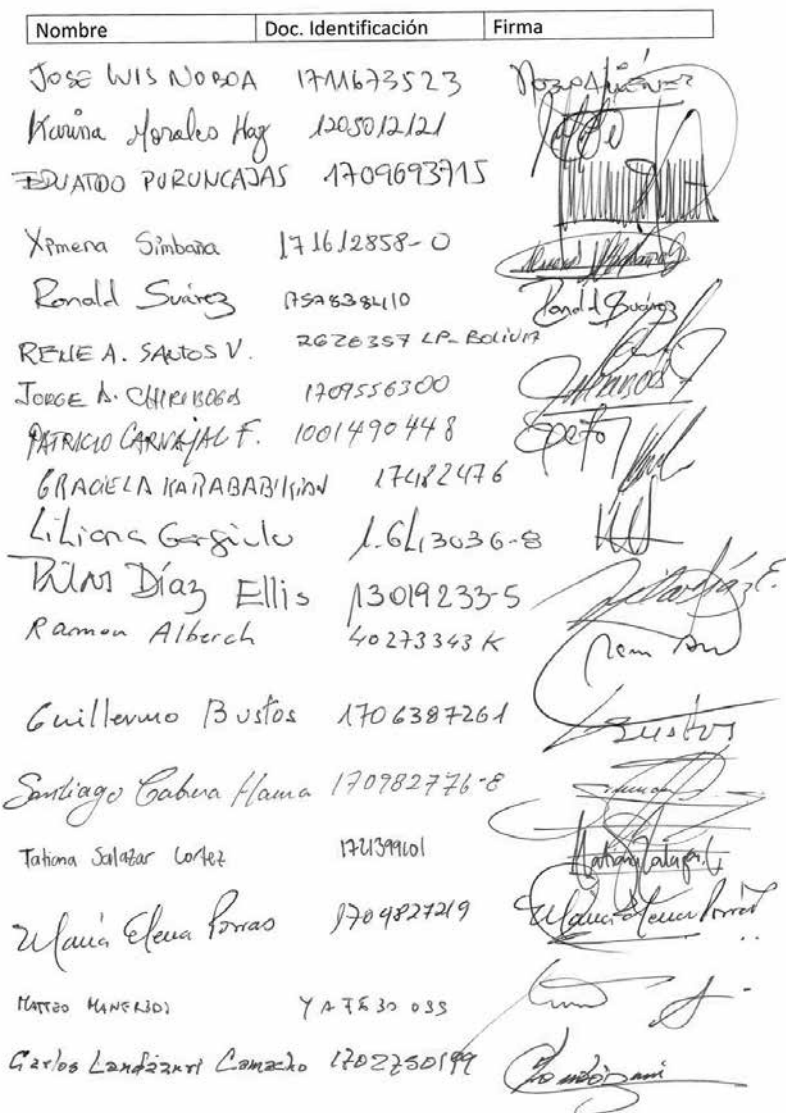 Nombre Doc. Identificación Firma
JOSE LUIS NOBOA 1711673523
Karina Morales Hag 1205012121
EDUARDO PURUNCAJAS 1709693715
Ximena Simbaña 171612858-0
Ronald Suárez Ronald Suárez
RENE A. SANTOS V. 2620357 LP-BOLIVIA
JORGE A. CHIRIBOGA 1709556300
PATRICIO CARVAJAL F. 1001490448
GRACIELA KARABABIKIAN 17482476
Liliana Gargiulo 1.643036-8
Pilar Díaz Ellis 13019233-5 Pilar Díaz E.
Ramon Alberch 40273343 K
Guillermo Bustos 1706387261 Bustos
Santiago Cabrera Hanna 170982776-8
Tatiana Salazar Cortez Tatiana Salazar C
María Elena Porras 1709827219 María Elena Porras
MATTEO MANFREDI
Carlos Landázuri Camacho 1702750199